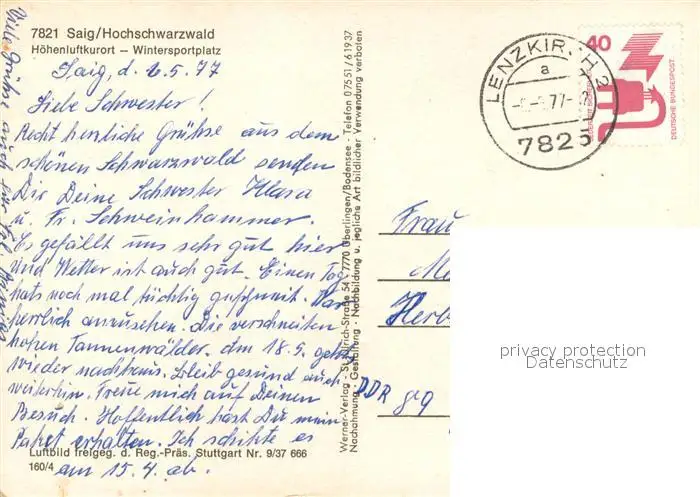 7821 Saig/Hochschwarzwald
Höhenluftkurort – Wintersportplatz
Saig, d. 2.5.77
Liebe Schwester!
Recht herzliche Grühse aus dem
schönen Schwarzwald senden
Dir Deine Schwester Klara
u. Fr. Schweinhammer.
Es gefällt uns sehr gut hier
und Wetter ist auch gut. Einen Tag
hats noch mal tüchtig geschneit. War
herrlich anzusehen. Die verschneiten
hohen Tannenwälder. Am 18.5. gehts
wieder nachhaus. Bleib gesund auch
weiterhin. Freue mich auf Deinen
Besuch. Hoffentlich hast Du mein
Paket erhalten. Ich schikte es
am 15.4. ab.
Luftbild freigeg. d. Reg.-Präs. Stuttgart Nr. 9/37 666
160/4
Viele Grühse auch
Werner-Verlag - 7770 Überlingen/Bodensee - Telefon 07551/61937
Nachahmung - Gestaltung - Nachbildung u. jegliche Art bildlicher Verwendung verboten
LENZKIRCH 2
a
77
7825
40
DEUTSCHE BUNDESPOST
Frau
Herb
DDR
privacy protection
Datenschutz